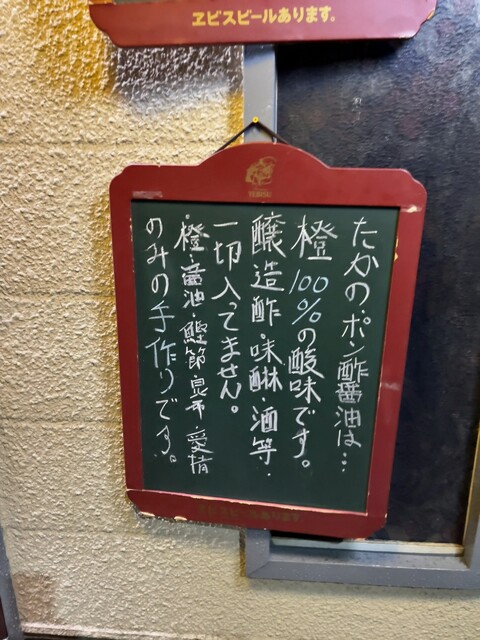 ヱビスビールあります。
YEBISU
たかの.ポン酢醤油は…
橙100%の酸味です。
醸造酢・味醂・酒等・
一切入ってません。
・橙・醤油・鰹節・昆布・愛情
のみの手作りです。
ヱビスビールあります。